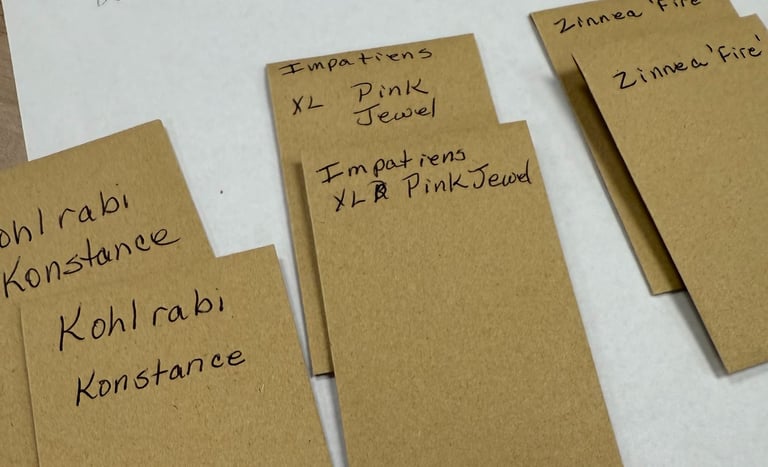 ohlrabi
Konstance
Kohlrabi
Konstance
Impatiens
XL Pink
Jewel
Impatiens
XL Pink Jewel
Zinnea 'Fire'
Zinnea 'Fire'